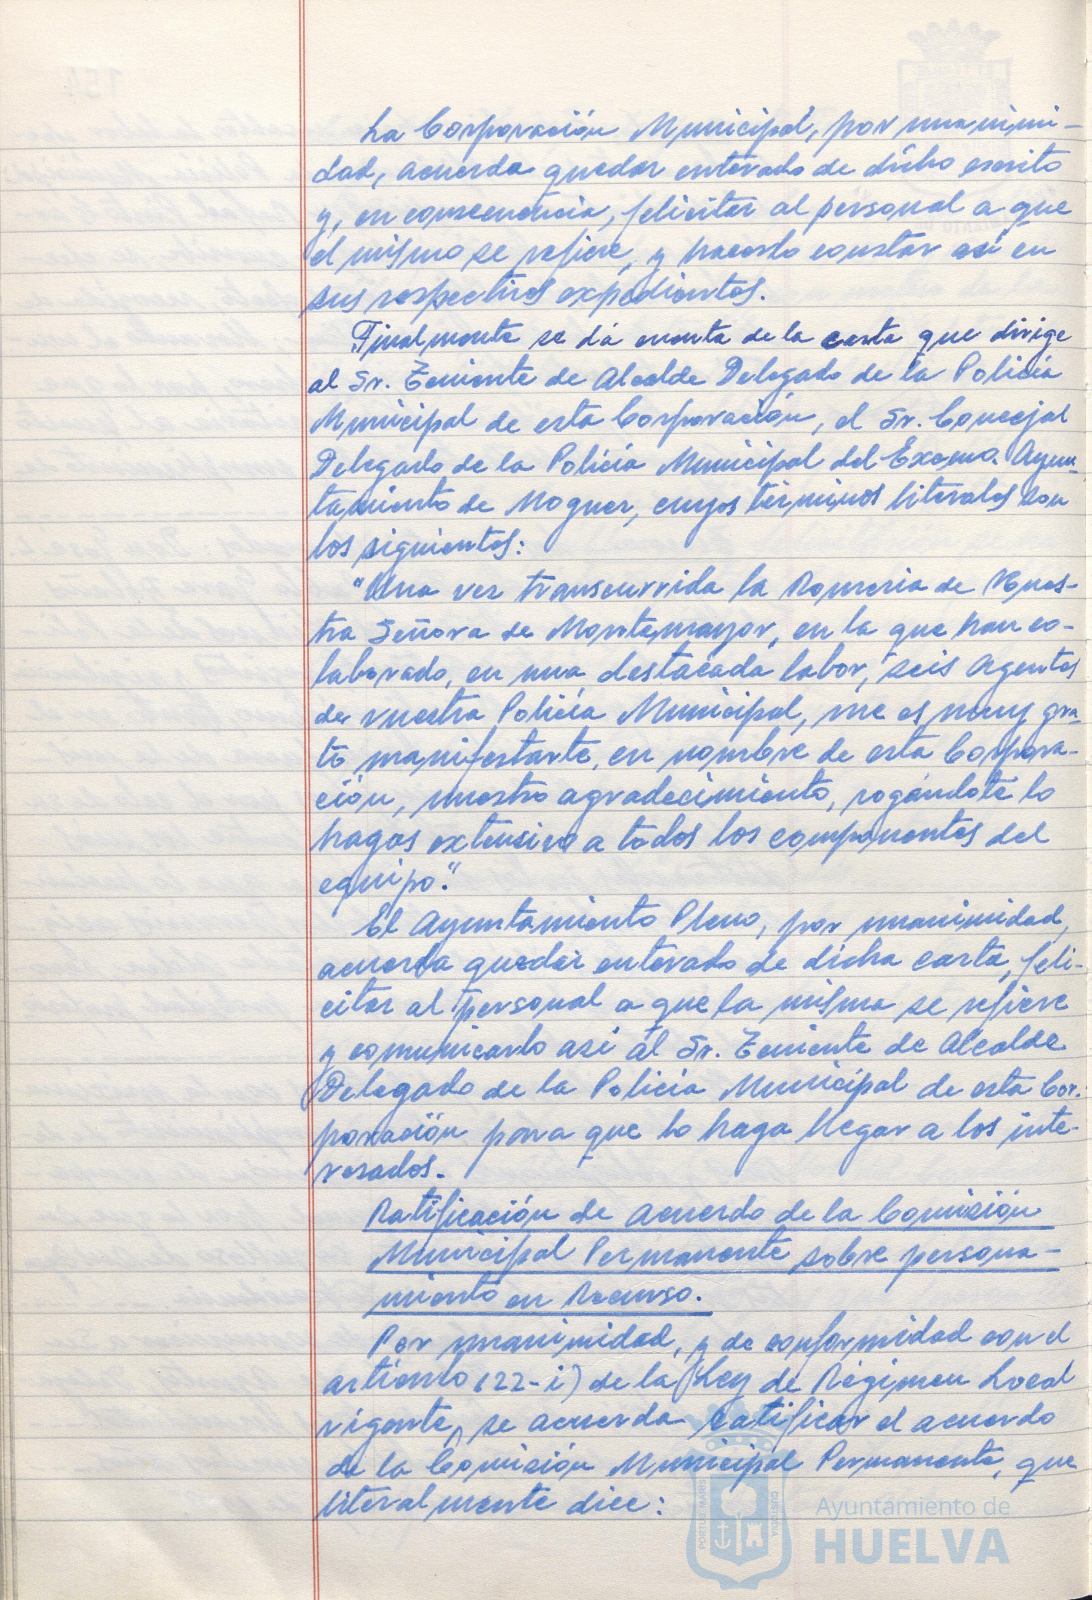 La Corporación Municipal, por unanimi-
dad, acuerda quedar enterado de dicho escrito
y, en consecuencia, felicitar al personal a que
el mismo se refiere, y hacerlo constar así en
sus respectivos expedientes.
Finalmente se dá cuenta de la carta que dirige
al Sr. Teniente de Alcalde Delegado de la Policía
Municipal de esta Corporación, el Sr. Concejal
Delegado de la Policía Municipal del Excmo. Ayun-
tamiento de Moguer, cuyos términos literales son
los siguientes:
"Una vez transcurrida la Romería de Nues-
tra Señora de Montemayor, en la que han co-
laborado, en una destacada labor, seis Agentes
de vuestra Policía Municipal, me es muy gra-
to manifestarte, en nombre de esta Corpora-
ción, nuestro agradecimiento, rogándote lo
hagas extensivo a todos los componentes del
equipo."
El Ayuntamiento Pleno, por unanimidad,
acuerda quedar enterado de dicha carta, feli-
citar al personal a que la misma se refiere
y comunicarlo así al Sr. Teniente de Alcalde
Delegado de la Policía Municipal de esta Cor-
poración para que lo haga llegar a los inte-
resados.
Ratificación de acuerdo de la Comisión
Municipal Permanente sobre persona-
miento en Recurso.
Por unanimidad, y de conformidad con el
artículo 122-i) de la Ley de Régimen Local
vigente, se acuerda ratificar el acuerdo
de la Comisión Municipal Permanente, que
literalmente dice:
Ayuntamiento de
HUELVA